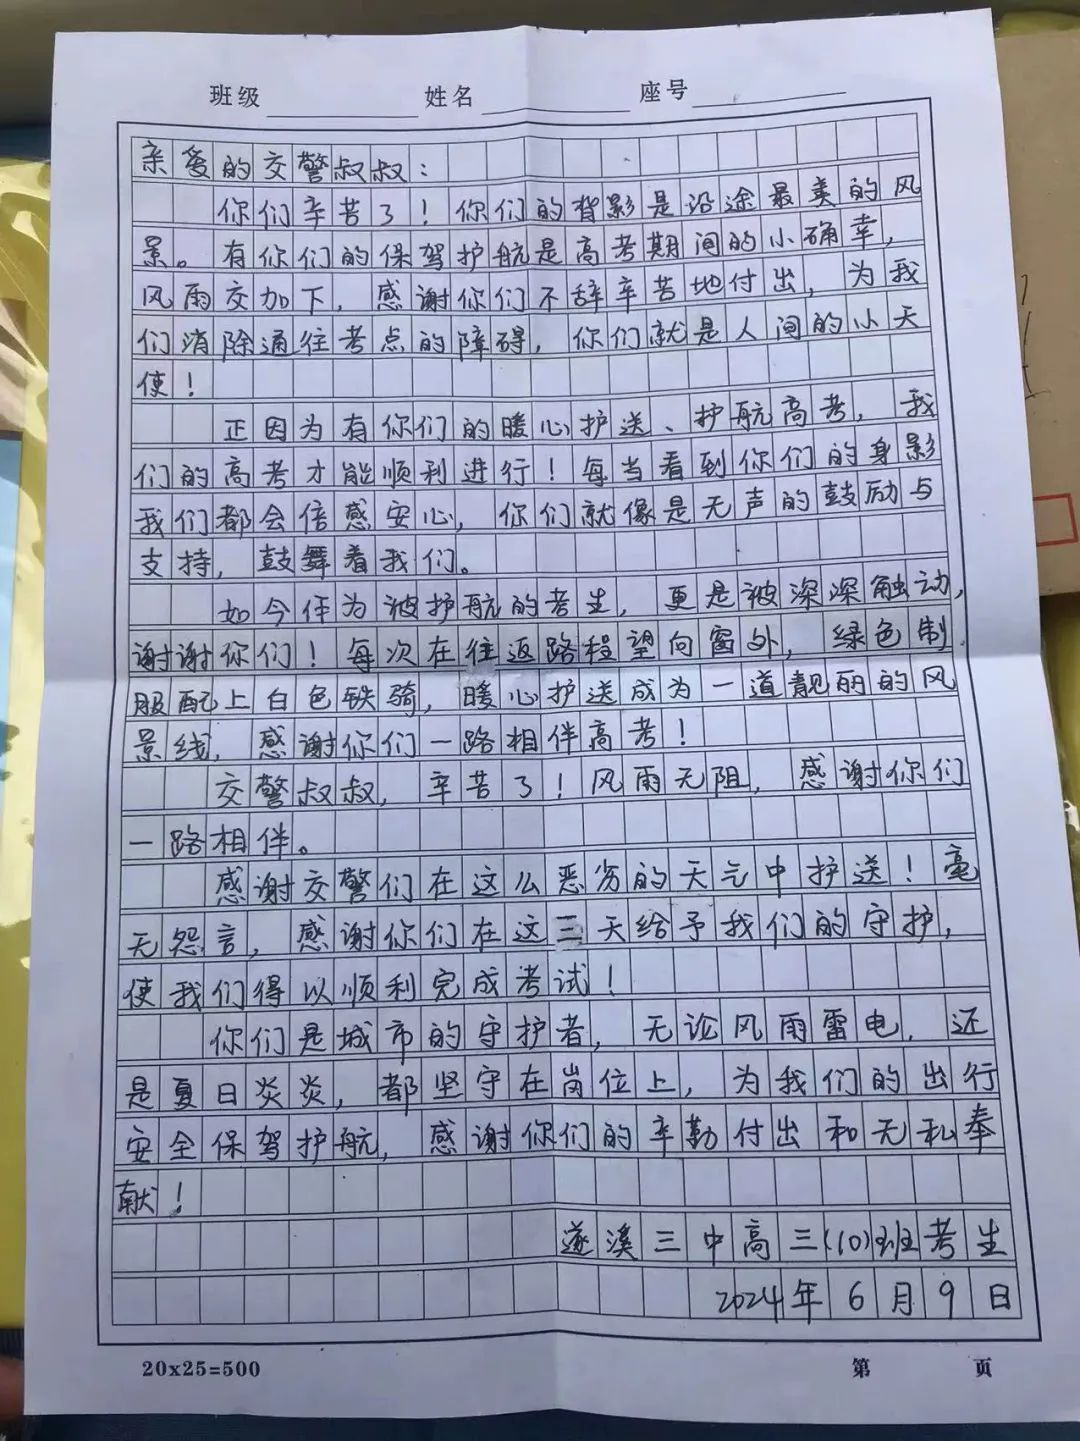 班级 姓名 座号
亲爱的交警叔叔：
你们辛苦了！你们的背影是沿途最美的风
景。有你们的保驾护航是高考期间的小确幸，
风雨交加下，感谢你们不辞辛苦地付出，为我
们消除通往考点的障碍，你们就是人间的小天
使！
正因为有你们的暖心护送、护航高考，我
们的高考才能顺利进行！每当看到你们的身影
我们都会倍感安心，你们就像是无声的鼓励与
支持，鼓舞着我们。
如今作为被护航的考生，更是被深深触动，
谢谢你们！每次在往返路程望向窗外，绿色制
服配上白色铁骑，暖心护送成为一道靓丽的风
景线，感谢你们一路相伴高考！
交警叔叔，辛苦了！风雨无阻，感谢你们
一路相伴。
感谢交警们在这么恶劣的天气中护送！毫
无怨言，感谢你们在这三天给予我们的守护，
使我们得以顺利完成考试！
你们是城市的守护者，无论风雨雷电，还
是夏日炎炎，都坚守在岗位上，为我们的出行
安全保驾护航，感谢你们的辛勤付出和无私奉
献！
遂溪三中高三(10)班考生
2024年6月9日
20x25=500 第 页